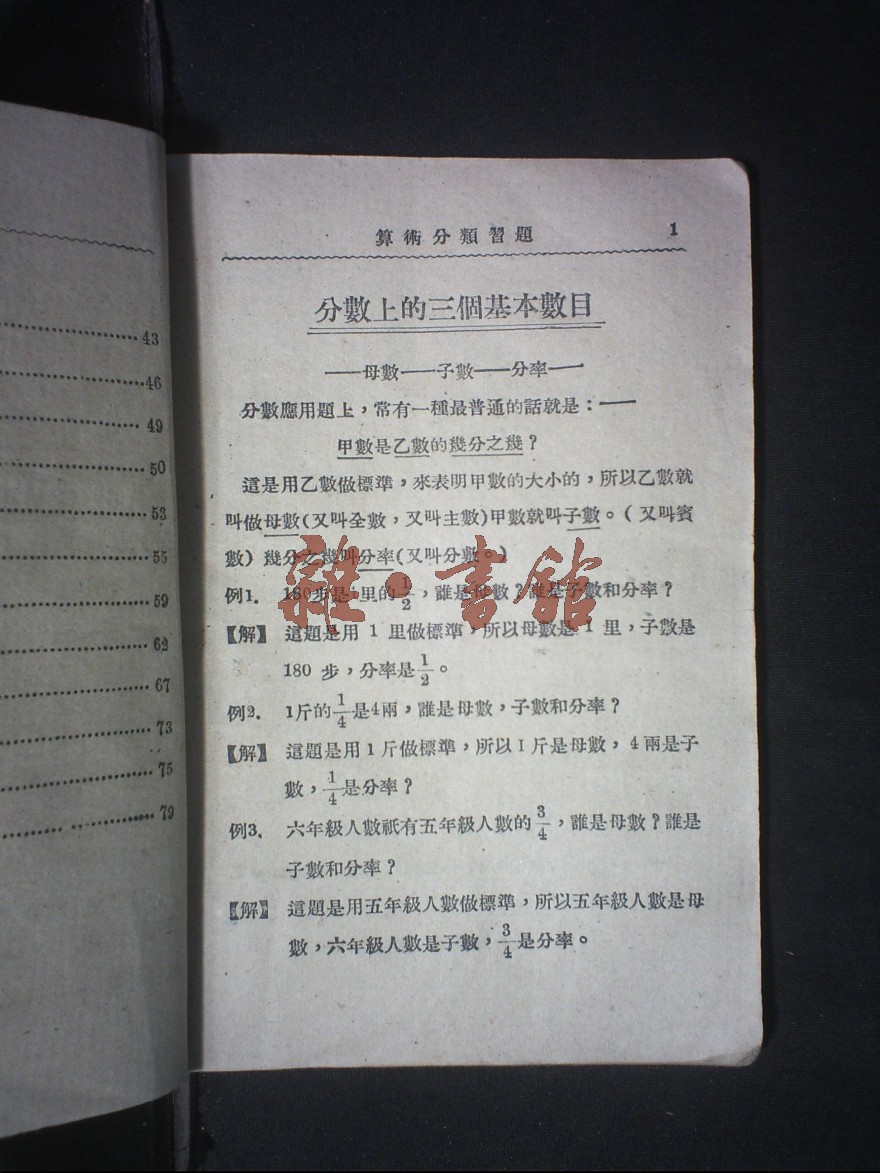 43
46
49
50
53
55
59
62
67
73
75
79
算術分類習題 1
分數上的三個基本數目
——母數——子數——分率——
分數應用題上，常有一種最普通的話就是：——
甲數是乙數的幾分之幾？
這是用乙數做標準，來表明甲數的大小的，所以乙數就
叫做母數(又叫全數，又叫主數)甲數就叫子數。（又叫賓
數）幾分之幾叫分率(又叫分數。)
例1. 180步是1里的1/2，誰是母數？誰是子數和分率？
【解】 這題是用 1 里做標準，所以母數是 1 里，子數是
180 步，分率是1/2。
例2. 1斤的1/4是4兩，誰是母數，子數和分率？
【解】 這題是用 1 斤做標準，所以 1 斤是母數，4 兩是子
數，1/4是分率？
例3. 六年級人數祇有五年級人數的3/4，誰是母數？誰是
子數和分率？
【解】 這題是用五年級人數做標準，所以五年級人數是母
數，六年級人數是子數，3/4是分率。
雜·書館